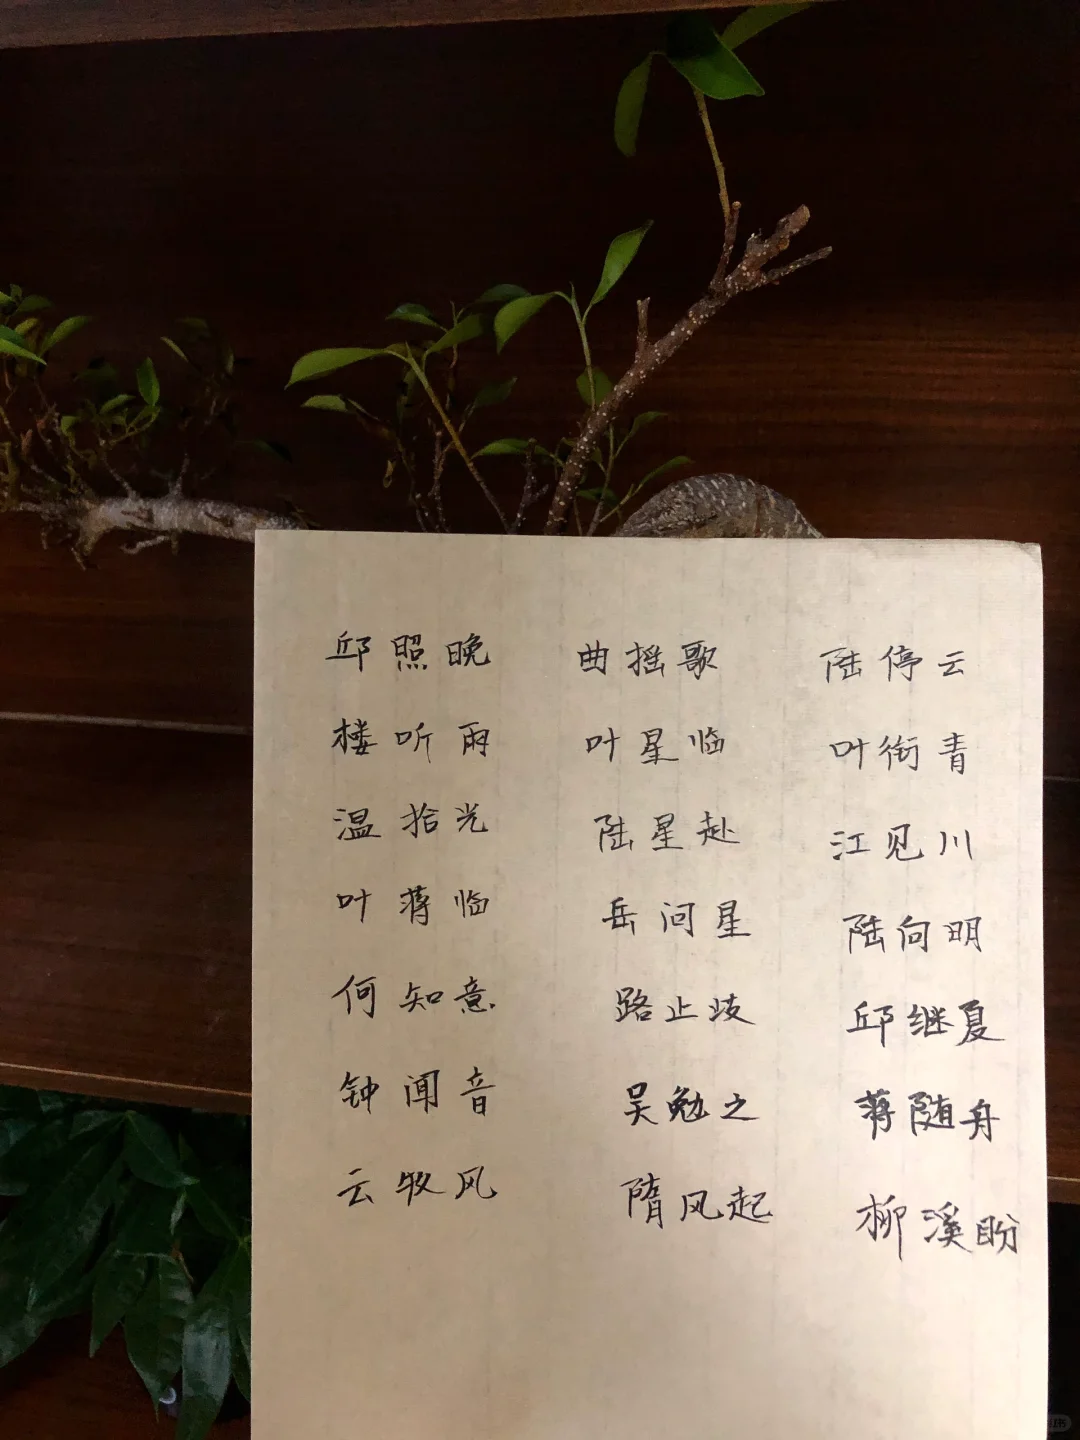 邱照晚 曲摇歌 陆停云
楼听雨 叶星临 叶衔青
温拾光 陆星赴 江见川
叶蒋临 岳问星 陆向明
何知意 路止歧 邱继夏
钟闻音 吴勉之 蒋随舟
云牧风 隋风起 柳溪盼